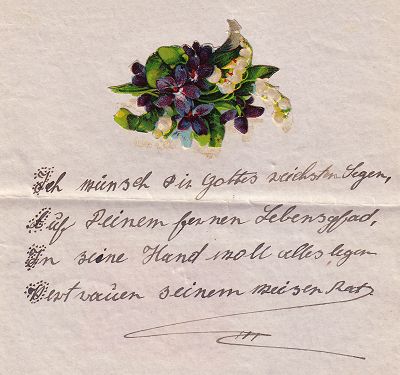 Ich wünsch dir Gottes reichsten Segen,
Auf Deinem fernen Lebenspfad,
In seine Hand woll alles legen
Vertrauen seinem weisen Rat.